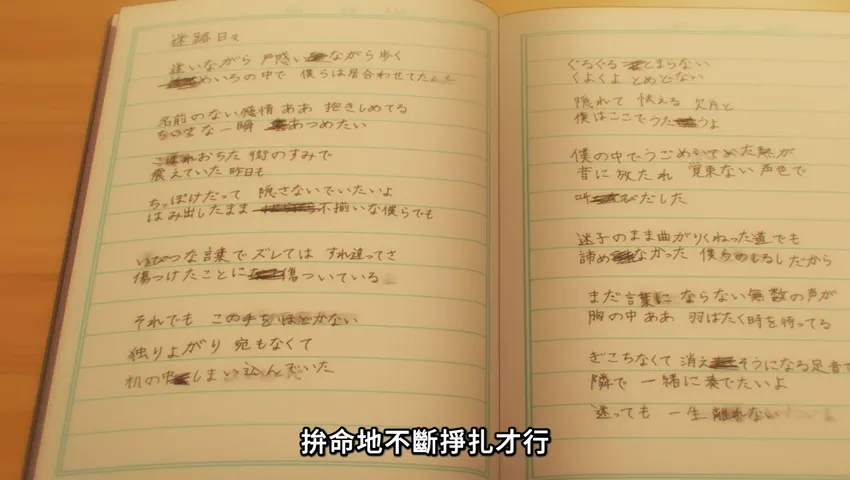 迷路日々
迷いながら 戸惑いながら歩く
めいろの中で 僕らは居合わせてた
名前のない感情 ああ 抱きしめてる
な一瞬 あつめたい
こぼれおちた 街のすみで
震えていた 昨日も
ちっぽけだって 隠さないでいたいよ
はみ出したまま 不揃いな僕らでも
いびつな言葉で ズレては すれ違ってさ
傷つけたことに 傷ついている
それでも この手をほどかない
独りよがり 宛もなくて
机の中 しまい込んでいた
ぐるぐる とまらない
くよくよ とめどない
隠れて 怯える 欠片と
僕はここでうたうよ
僕の中でうごめいてた熱が
音に放たれ 覚束ない声色で
叫びだした
迷子のまま曲がりくねった道でも
諦めなかった 僕らのしるしだから
まだ言葉に ならない無数の声が
胸の中 ああ 羽ばたく時を待ってる
ぎこちなくて 消えそうになる足音で
隣で 一緒に奏でたいよ
迷っても 一生 離れない
拚命地不斷掙扎才行